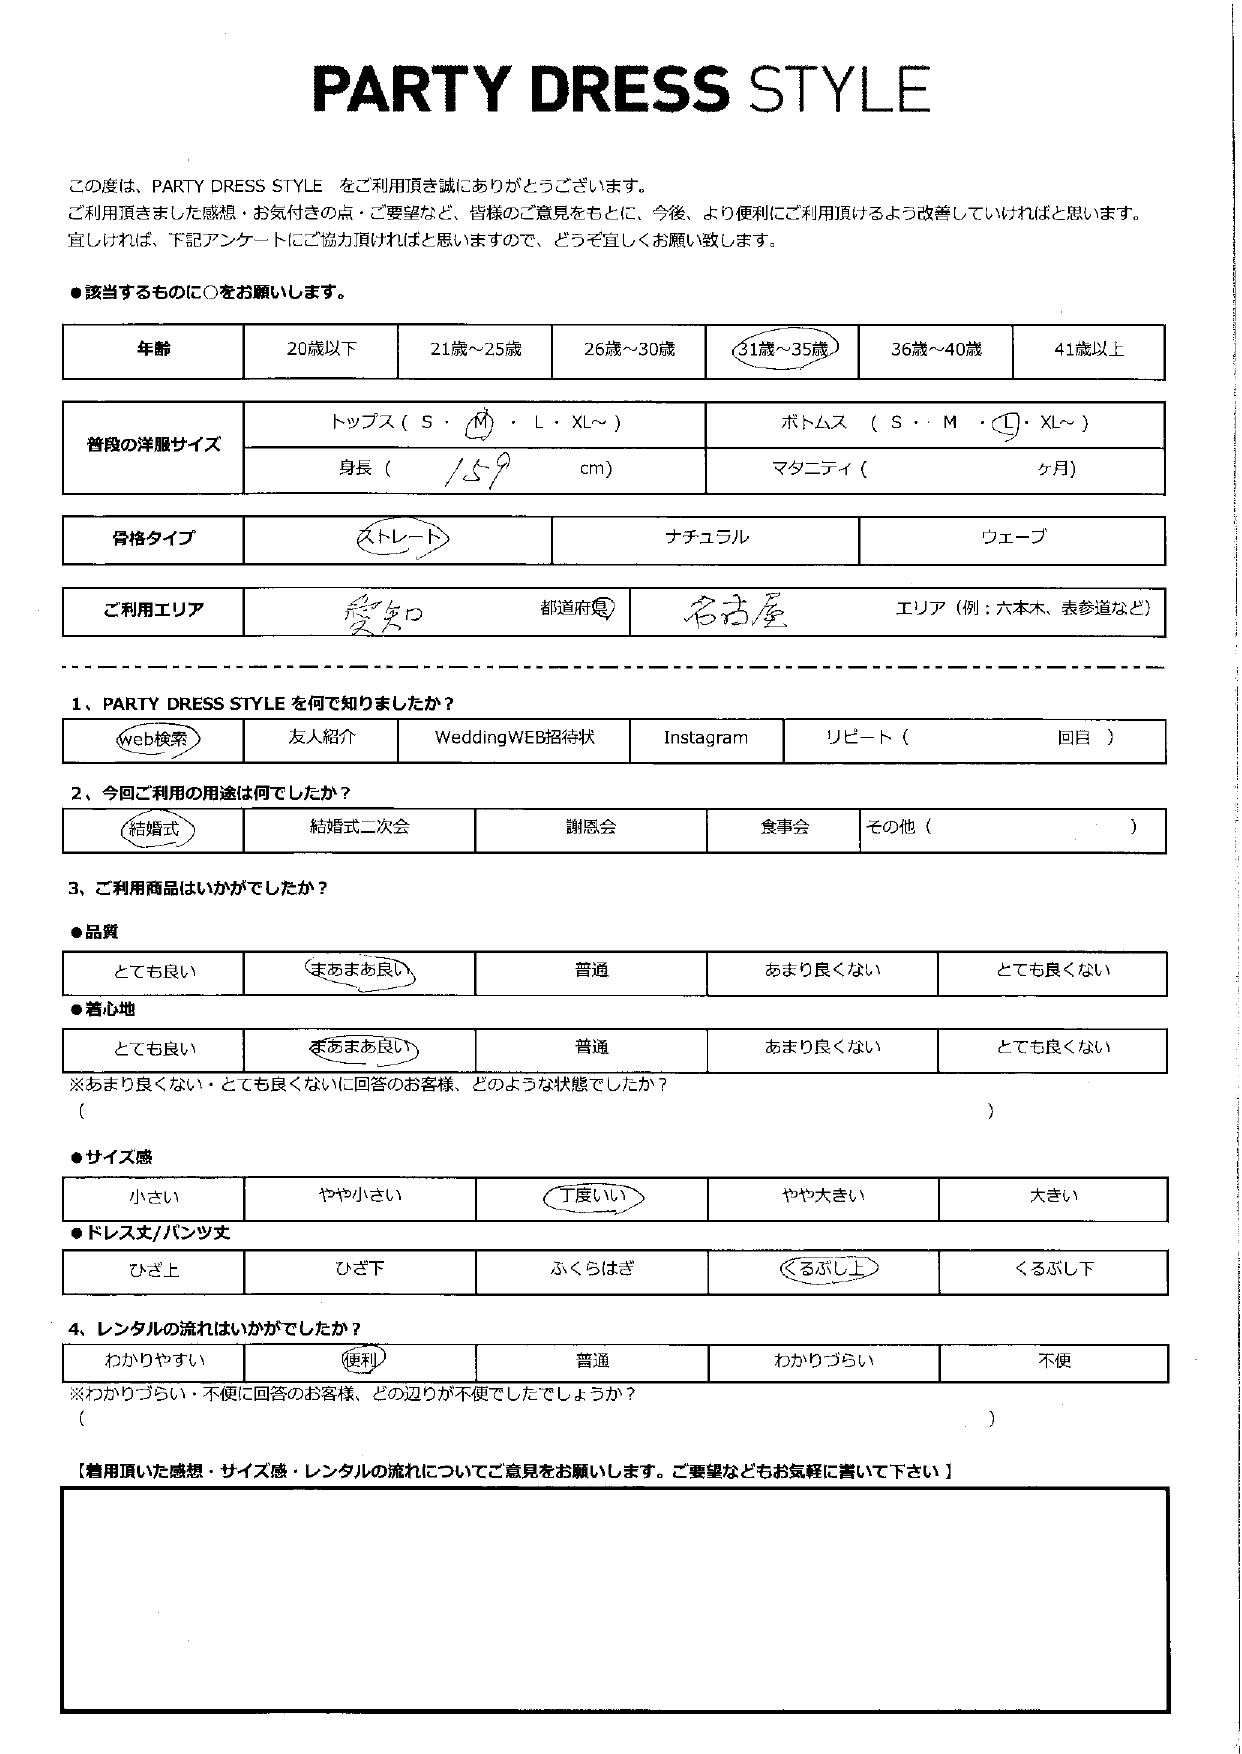 PARTY DRESS STYLE
この度は、PARTY DRESS STYLE をご利用頂き誠にありがとうございます。
ご利用頂きました感想・お気付きの点・ご要望など、皆様のご意見をもとに、今後、より便利にご利用頂けるよう改善していければと思います。
宜しければ、下記アンケートにご協力頂ければと思いますので、どうぞ宜しくお願い致します。
●該当するものに○をお願いします。
年齢 20歳以下 21歳～25歳 26歳～30歳 31歳～35歳 36歳～40歳 41歳以上
普段の洋服サイズ
トップス ( S ・ M ・ L ・ XL～ ) ボトムス ( S ・・ M ・ L ・ XL～ )
身長 ( 159 cm) マタニティ ( ヶ月)
骨格タイプ ストレート ナチュラル ウェーブ
ご利用エリア 愛知 都道府県 名古屋 エリア（例：六本木、表参道など）
1、PARTY DRESS STYLE を何で知りましたか？
web検索 友人紹介 WeddingWEB招待状 Instagram リピート ( 回目 )
2、今回ご利用の用途は何でしたか？
結婚式 結婚式二次会 謝恩会 食事会 その他 ( )
3、ご利用商品はいかがでしたか？
●品質
とても良い まあまあ良い 普通 あまり良くない とても良くない
●着心地
とても良い まあまあ良い 普通 あまり良くない とても良くない
※あまり良くない・とても良くないに回答のお客様、どのような状態でしたか？
( )
●サイズ感
小さい やや小さい 丁度いい やや大きい 大きい
●ドレス丈/パンツ丈
ひざ上 ひざ下 ふくらはぎ くるぶし上 くるぶし下
4、レンタルの流れはいかがでしたか？
わかりやすい 便利 普通 わかりづらい 不便
※わかりづらい・不便に回答のお客様、どの辺りが不便でしたでしょうか？
( )
【着用頂いた感想・サイズ感・レンタルの流れについてご意見をお願いします。ご要望などもお気軽に書いて下さい 】